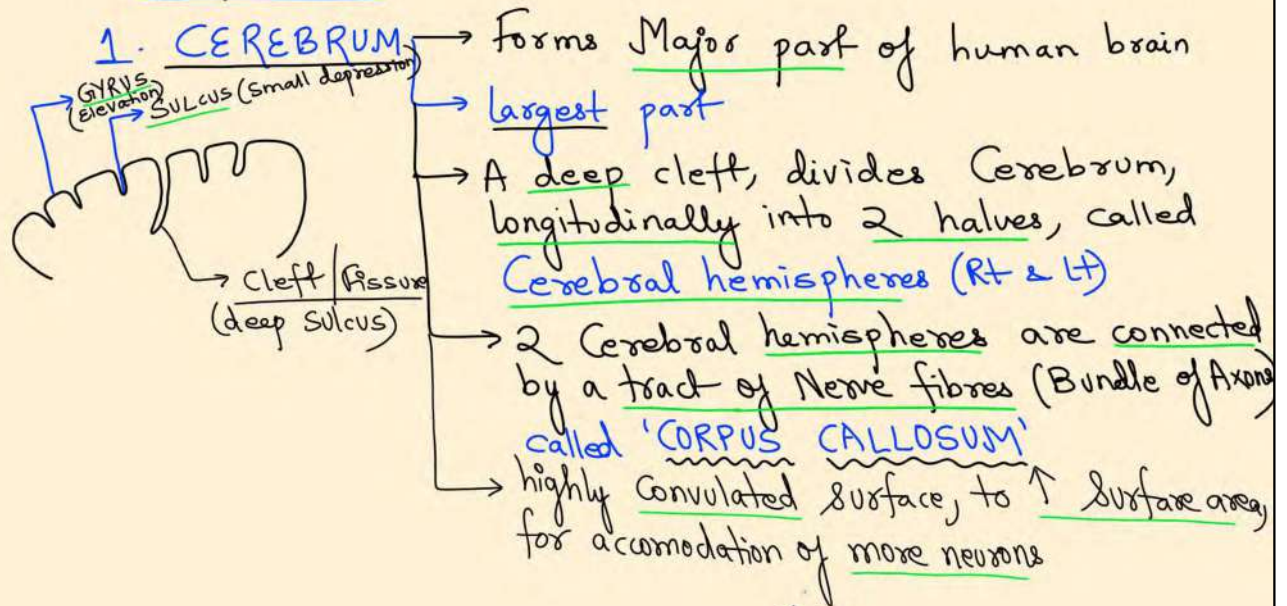 1. CEREBRUM
GYRUS
(Elevation)
SULCUS (small depression)
Cleft/Fissure
(deep Sulcus)
→ Forms Major part of human brain
→ largest part
→ A deep cleft, divides Cerebrum,
longitudinally into 2 halves, called
Cerebral hemispheres (Rt & Lt)
→ 2 Cerebral hemispheres are connected
by a tract of Nerve fibres (Bundle of Axons)
called 'CORPUS CALLOSUM'
→ highly Convulated surface, to ↑ Surface area,
for accomodation of more neurons